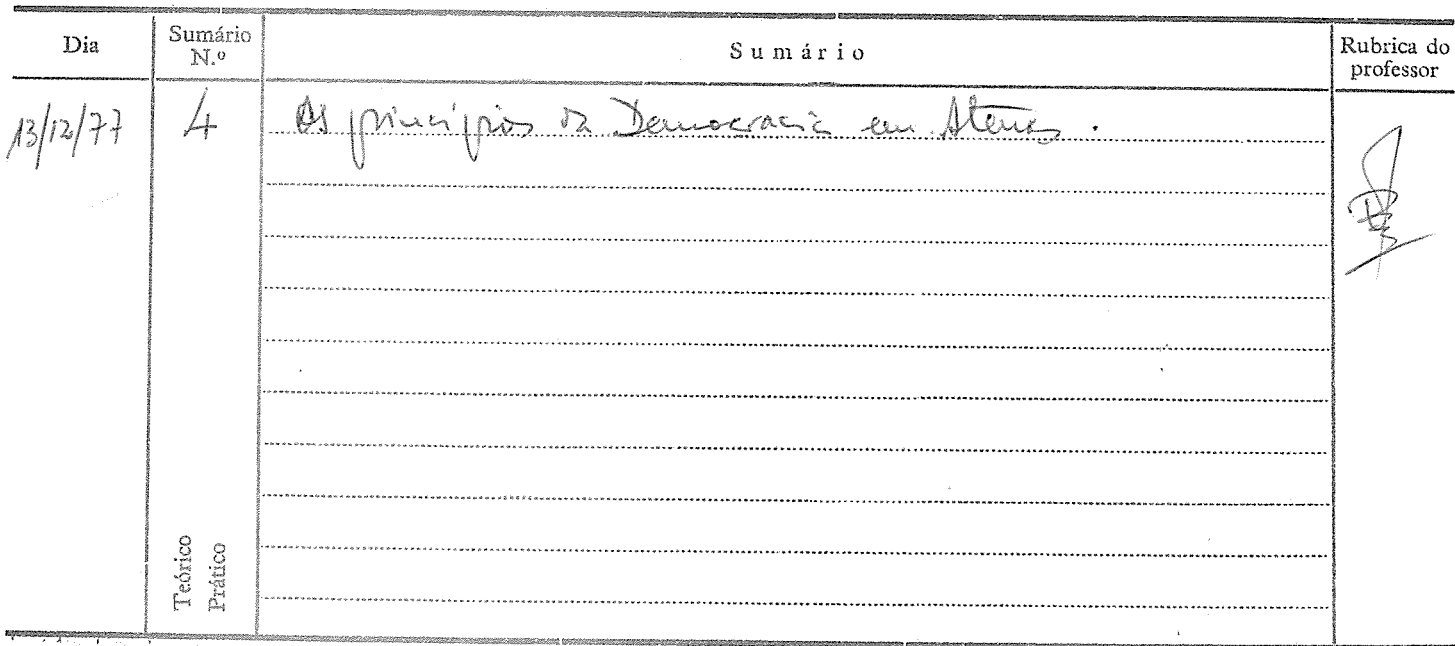 Dia
Sumário
N.º
Sumário
Rubrica do
professor
13/12/77
4
Os princípios da Democracia em Atenas.
Teórico
Prático